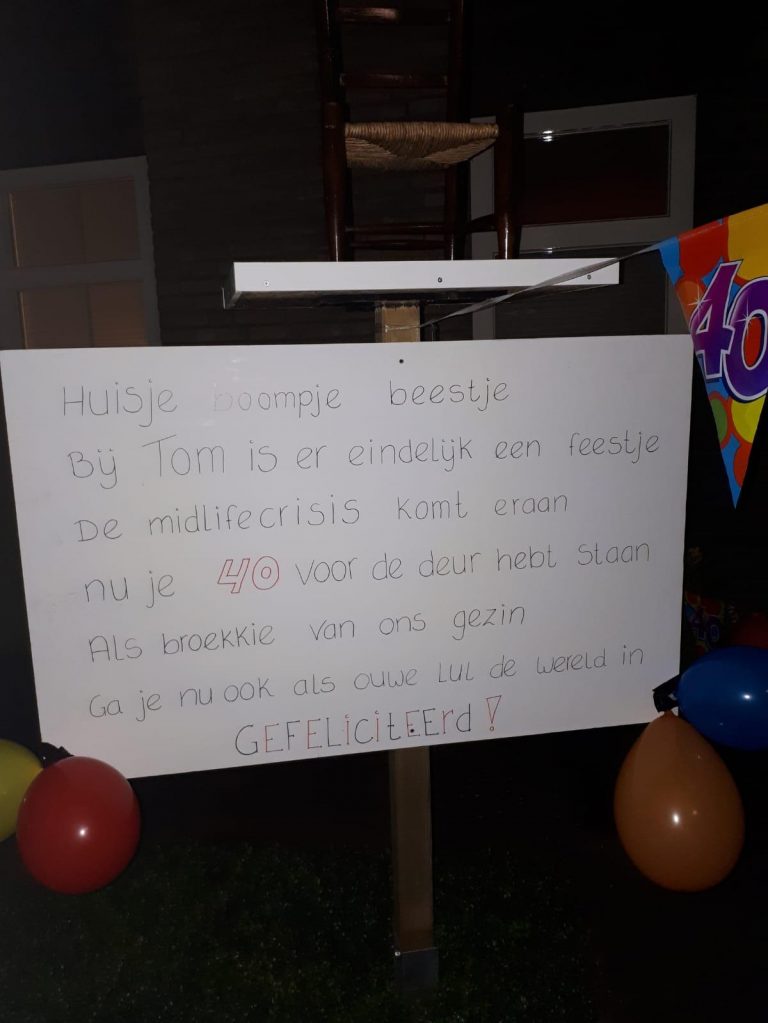 Huisje boompje beestje
Bij Tom is er eindelijk een feestje
De midlifecrisis komt eraan
nu je 40 voor de deur hebt staan
Als broekkie van ons gezin
Ga je nu ook als ouwe lul de wereld in
GEFELiciteErd!
40